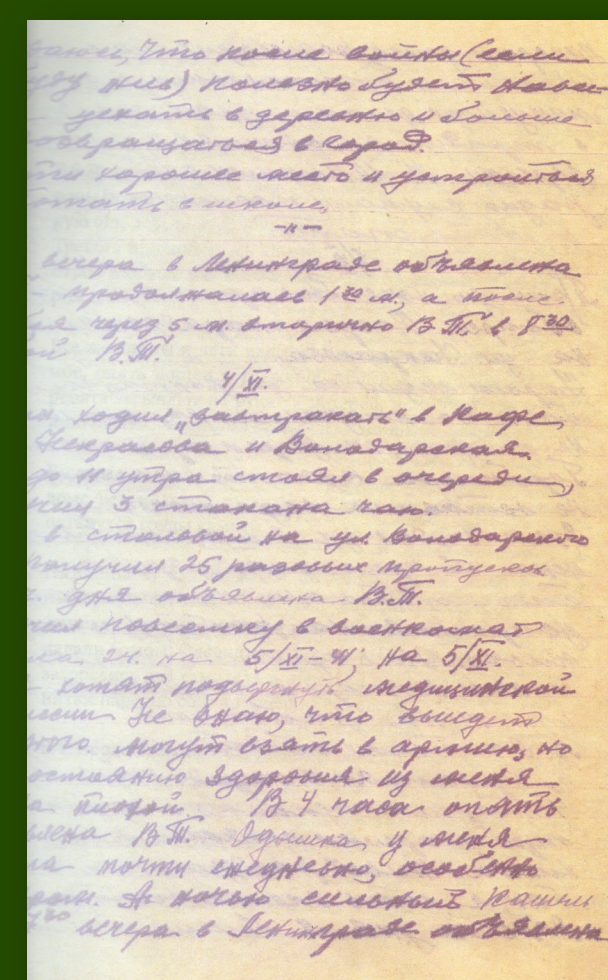 что после войны (если
буду жив) полезно будет навсе-
уехать в деревню и больше
возвращаться в город.
хорошее место и устроиться
в школе.
—"—
вечера в Ленинграде объявлена
продолжалась 1 30 м., а после
через 5 м. вторично В.Т. в 8 30
В.Т.
4/XI.
ходил „завтракать" в Кафе
Некрасова и Володарская.
до 11 утра стоял в очереди,
3 стакана чаю
в столовой на ул. Володарского
получил 25 разовых пропусков
дня объявлена В.Т.
повестку в военкомат
на 5/XI-41, на 5/XI.
хотят подвергнуть медицинской
Не знаю, что выйдет
этого. могут взять в армию, но
состоянию здоровья из меня
плохой В 4 часа опять
В.Т. Одышка у меня
почти ежедневно, особенно
А ночью сильный кашель
вечера в Ленинграде объявлена